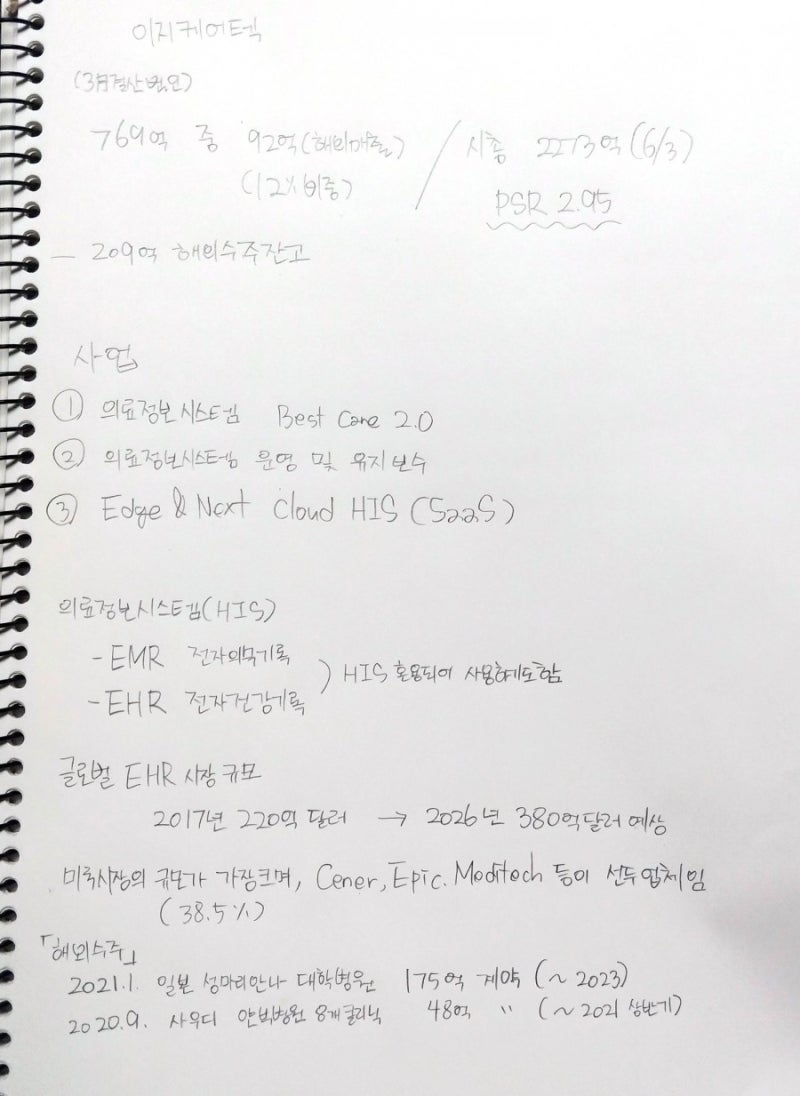 이지케어텍
(3月결산법인)
769억 중 92억(해외매출) / 시총 2273억(6/3)
(12%비중) PSR 2.95
- 209억 해외수주잔고
사업
① 의료정보시스템 Best Care 2.0
② 의료정보시스템 운영 및 유지보수
③ Edge & Next Cloud HIS (SaaS)
의료정보시스템(HIS)
- EMR 전자의무기록
) HIS 혼용되어 사용하기도함
- EHR 전자건강기록
글로벌 EHR 시장규모
2017년 220억 달러 → 2026년 380억달러 예상
미국시장의 규모가 가장크며, Cener, Epic. Meditech 등이 선두업체임
(38.5%)
「해외수주」
2021.1. 일본 성마리안나 대학병원 175억 계약 (~2023)
2020.9. 사우디 안빅병원 8개클리닉 48억 " (~2021 상반기)